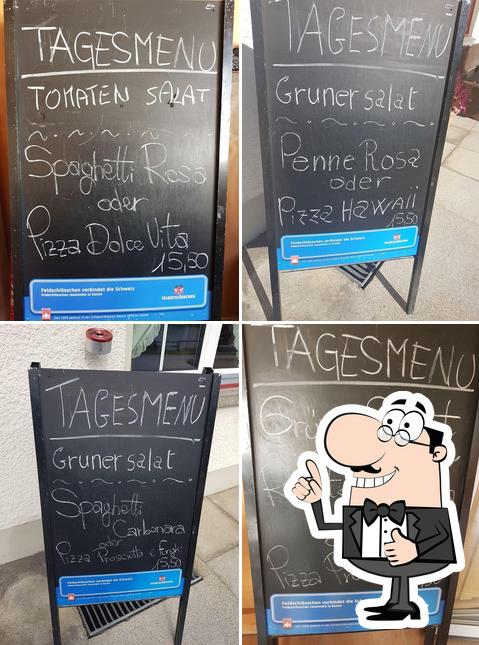 TAGESMENU
TOMATEN SALAT
Spaghetti Rosa
oder
Pizza Dolce Vita
15,50
Feldschlösschen verbindet die Schweiz
Feldschlösschen rassemble la Suisse
FELDSCHLÖSSCHEN
TAGESMENU
Gruner salat
Penne Rosa
oder
Pizza HAWAII
15,50
Feldschlösschen verbindet die Schweiz
TAGESMENU
Gruner salat
Spaghetti
Carbonara
oder
Pizza Prosciutto e funghi
15,50
Feldschlösschen verbindet die Schweiz
TAGESMENU
Pizza
Feldschlösschen verbindet die Schweiz